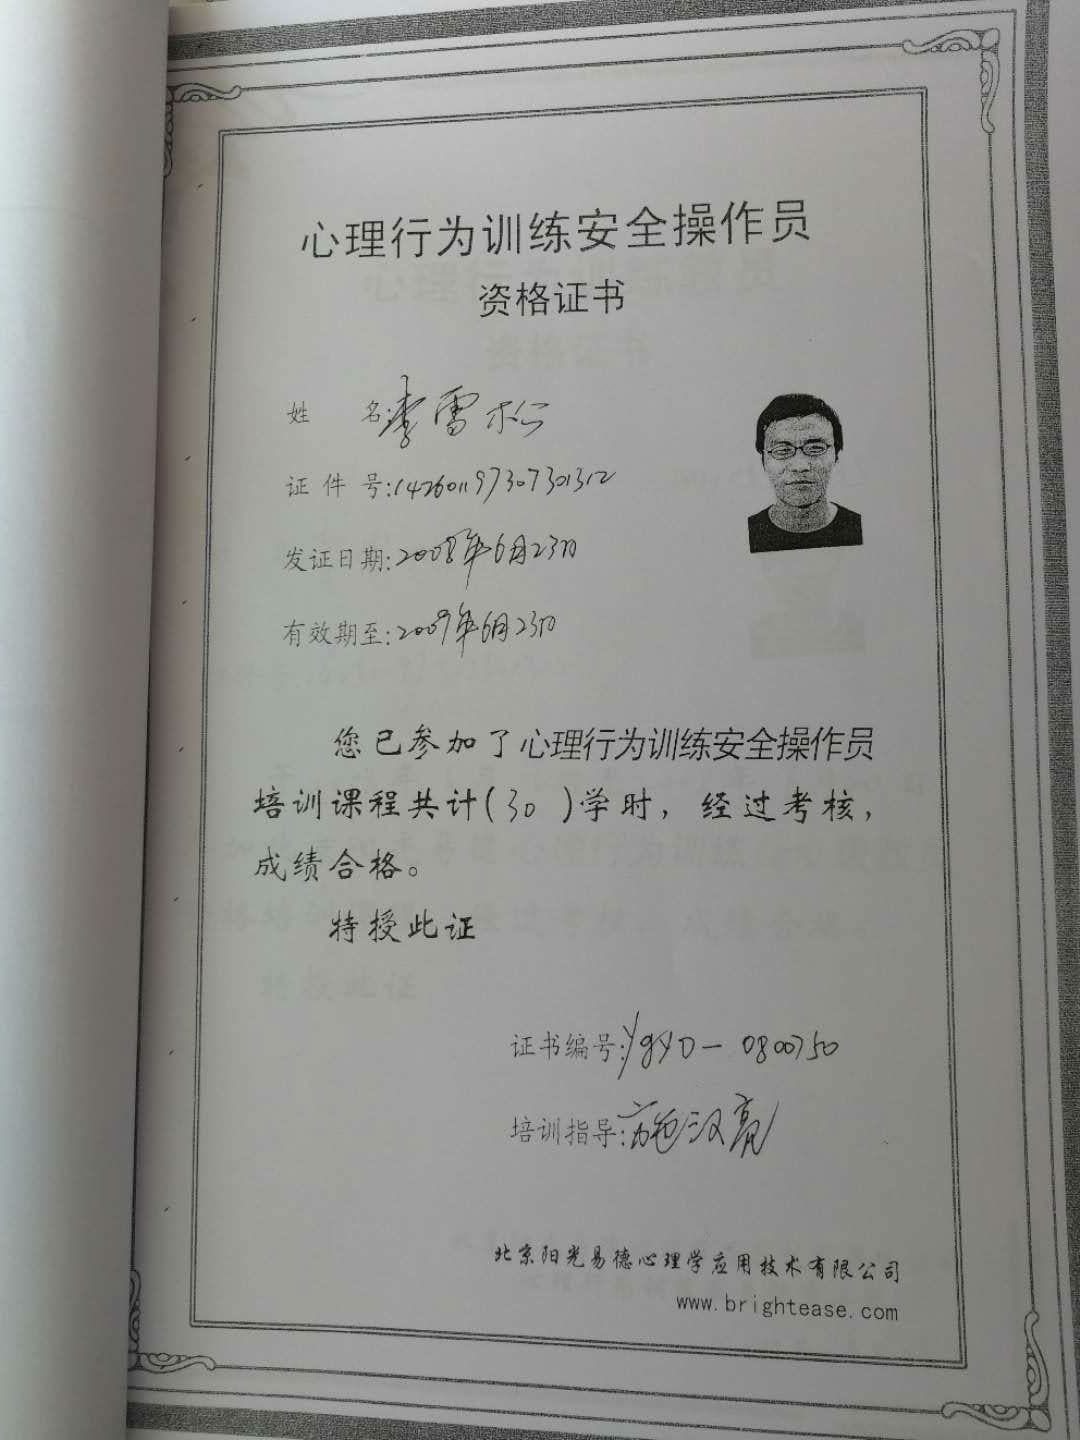 心理行为训练安全操作员
资格证书
姓 名:李雪松
证件号:142601197307301312
发证日期:2008年6月23日
有效期至:2009年6月23日
您已参加了心理行为训练安全操作员
培训课程共计(30)学时，经过考核，
成绩合格。
特授此证
证书编号:YgYD-0800750
培训指导:施汉亮
北京阳光易德心理学应用技术有限公司
www.brightease.com